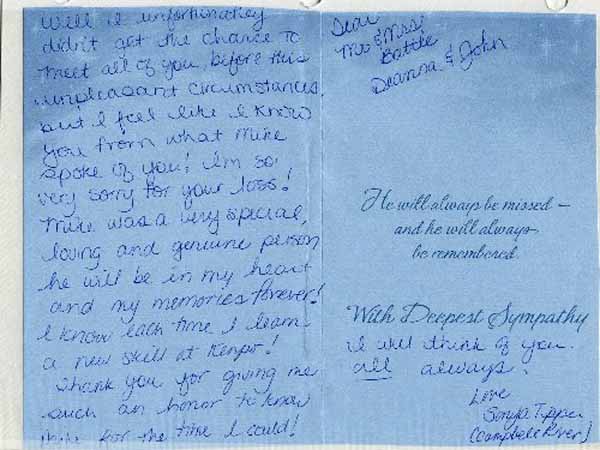 Well I unfortunatley
didn't get the chance to
meet all of you, before this
unpleasant circumstances,
but I feel like I know
you from what Mike
spoke of you! I'm so
very sorry for your loss!
Mike was a very special,
loving and genuine person
he will be in my heart
and my memories forever!
I know each time I learn
a new skill at Kenpo!
Thank you for giving me
such an honor to know
Mike for the time I could!
Dear
Mr & Mrs.
Battle
Deanna & John
He will always be missed –
and he will always
be remembered.
With Deepest Sympathy
I will think of you
all always.
Love
Sonya
(Campbell River)